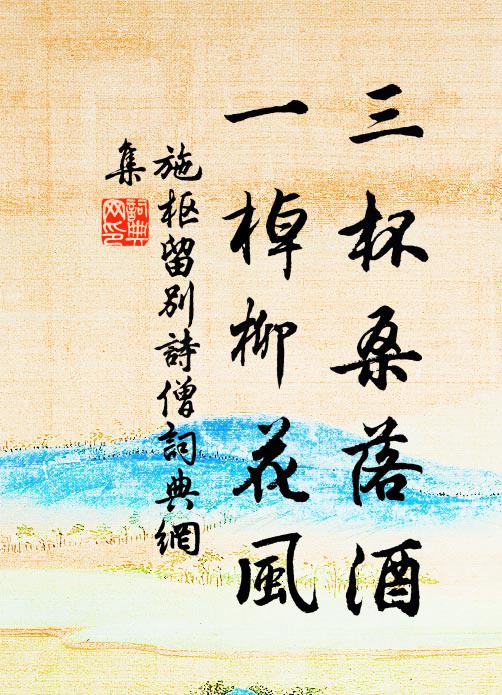 三杯桑落酒
一棹柳花風
施枢留別詩僧詞典網
集
詞典
网印